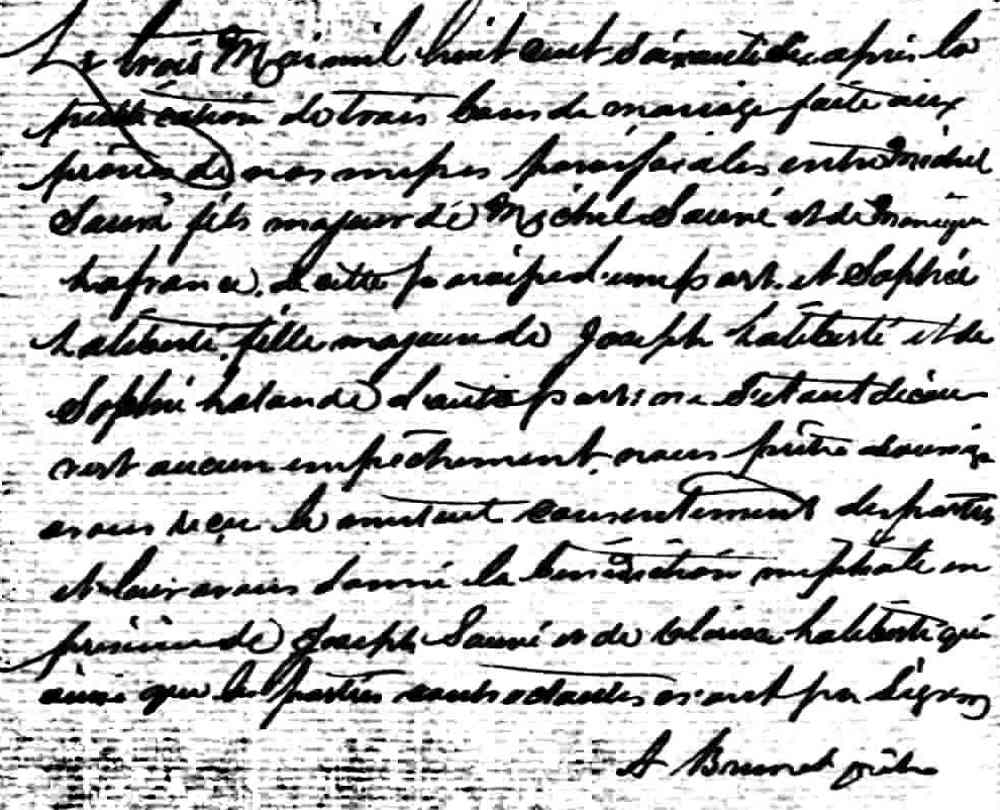 Le trois Mai mil huit cent soixante dix après la
publication de trois bans de mariage faite aux
prônes de nos messes paroissiales entre Michel
Sauvé fils majeur de Michel Sauvé et de Monique
Lafrance, de cette paroisse d'une part, et Sophie
Laliberté, fille majeure de Joseph Laliberté et de
Sophie Lalande d'autre part; ne s'étant décou
vert aucun empêchement, nous prêtre soussigné
avons reçu le mutuel consentement des parties
et leur avons donné la bénédiction nuptiale en
présence de Joseph Sauvé et de Laliberté qui
ainsi que les parties contractantes n'ont pu signer
A Brunet prêtre